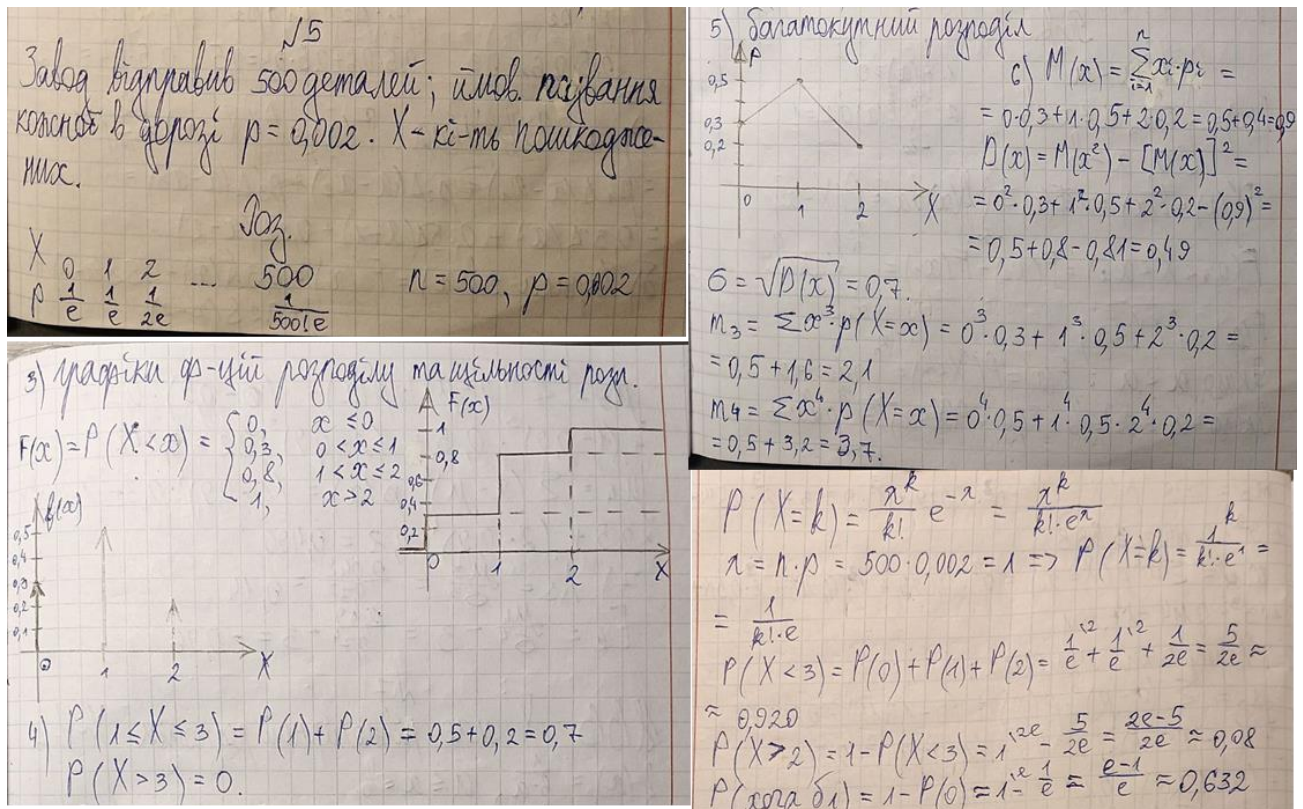 №5
Завод відправив 500 деталей; ймов. псування
кожної в дорозі p = 0,002. X – кі-ть пошкодже-
них.
Роз.
X 0 1 2 ... 500 n = 500, p = 0,002
P 1/e 1/e 1/2e 1/500!e
3) графіки ф-цій розподілу та щільності розп.
F(x) = P(X < x) = { 0, x ≤ 0
0,3, 0 < x ≤ 1
0,8, 1 < x ≤ 2
1, x > 2
F(x)
1
0,8
0,6
0,4
0,2
0 1 2 X
f(x)
0,5
0,4
0,3
0,2
0,1
0 1 2 X
4) P(1 ≤ X ≤ 3) = P(1) + P(2) = 0,5 + 0,2 = 0,7
P(X > 3) = 0.
5) багатокутний розподіл
P
0,5
0,3
0,2
0 1 2 X
6) M(x) = Σ xi·pi =
n
i=1
= 0·0,3 + 1·0,5 + 2·0,2 = 0,5 + 0,4 = 0,9
D(x) = M(x²) – [M(x)]² =
= 0²·0,3 + 1²·0,5 + 2²·0,2 – (0,9)² =
= 0,5 + 0,8 – 0,81 = 0,49
σ = √D(x) = 0,7.
m₃ = Σx³·p(X=x) = 0³·0,3 + 1³·0,5 + 2³·0,2 =
= 0,5 + 1,6 = 2,1
m₄ = Σx⁴·p(X=x) = 0⁴·0,5 + 1⁴·0,5·2⁴·0,2 =
= 0,5 + 3,2 = 3,7.
P(X=k) = λ^k/k! e^-λ = λ^k/k!·e^λ
λ = n·p = 500·0,002 = 1 => P(X=k) = 1^k/k!·e¹ =
= 1/k!·e
P(X < 3) = P(0) + P(1) + P(2) = 1/e + 1/e + 1/2e = 5/2e ≈
≈ 0,920
P(X > 2) = 1 – P(X < 3) = 1 – 5/2e = 2e–5/2e ≈ 0,08
P(хоча б 1) = 1 – P(0) = 1 – 1/e = e–1/e ≈ 0,632